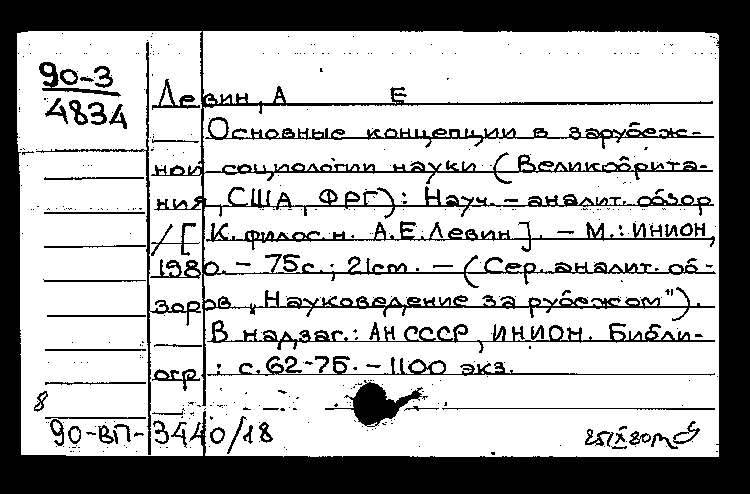 90-3
4834
Левин, А Е
Основные концепции в зарубеж-
ной социологии науки (Великобрита-
ния, США, ФРГ): Науч. - аналит. обзор
/ [К. филос. н. А.Е. Левин]. - М.: ИНИОН,
1980. - 75с.; 21cm. - (Сер. аналит. об-
зоров „Науковедение за рубежом").
В надзаг.: АН СССР, ИНИОН. Библи-
огр.: с. 62-75. - 1100 экз.
8
90-ВП-3440/18